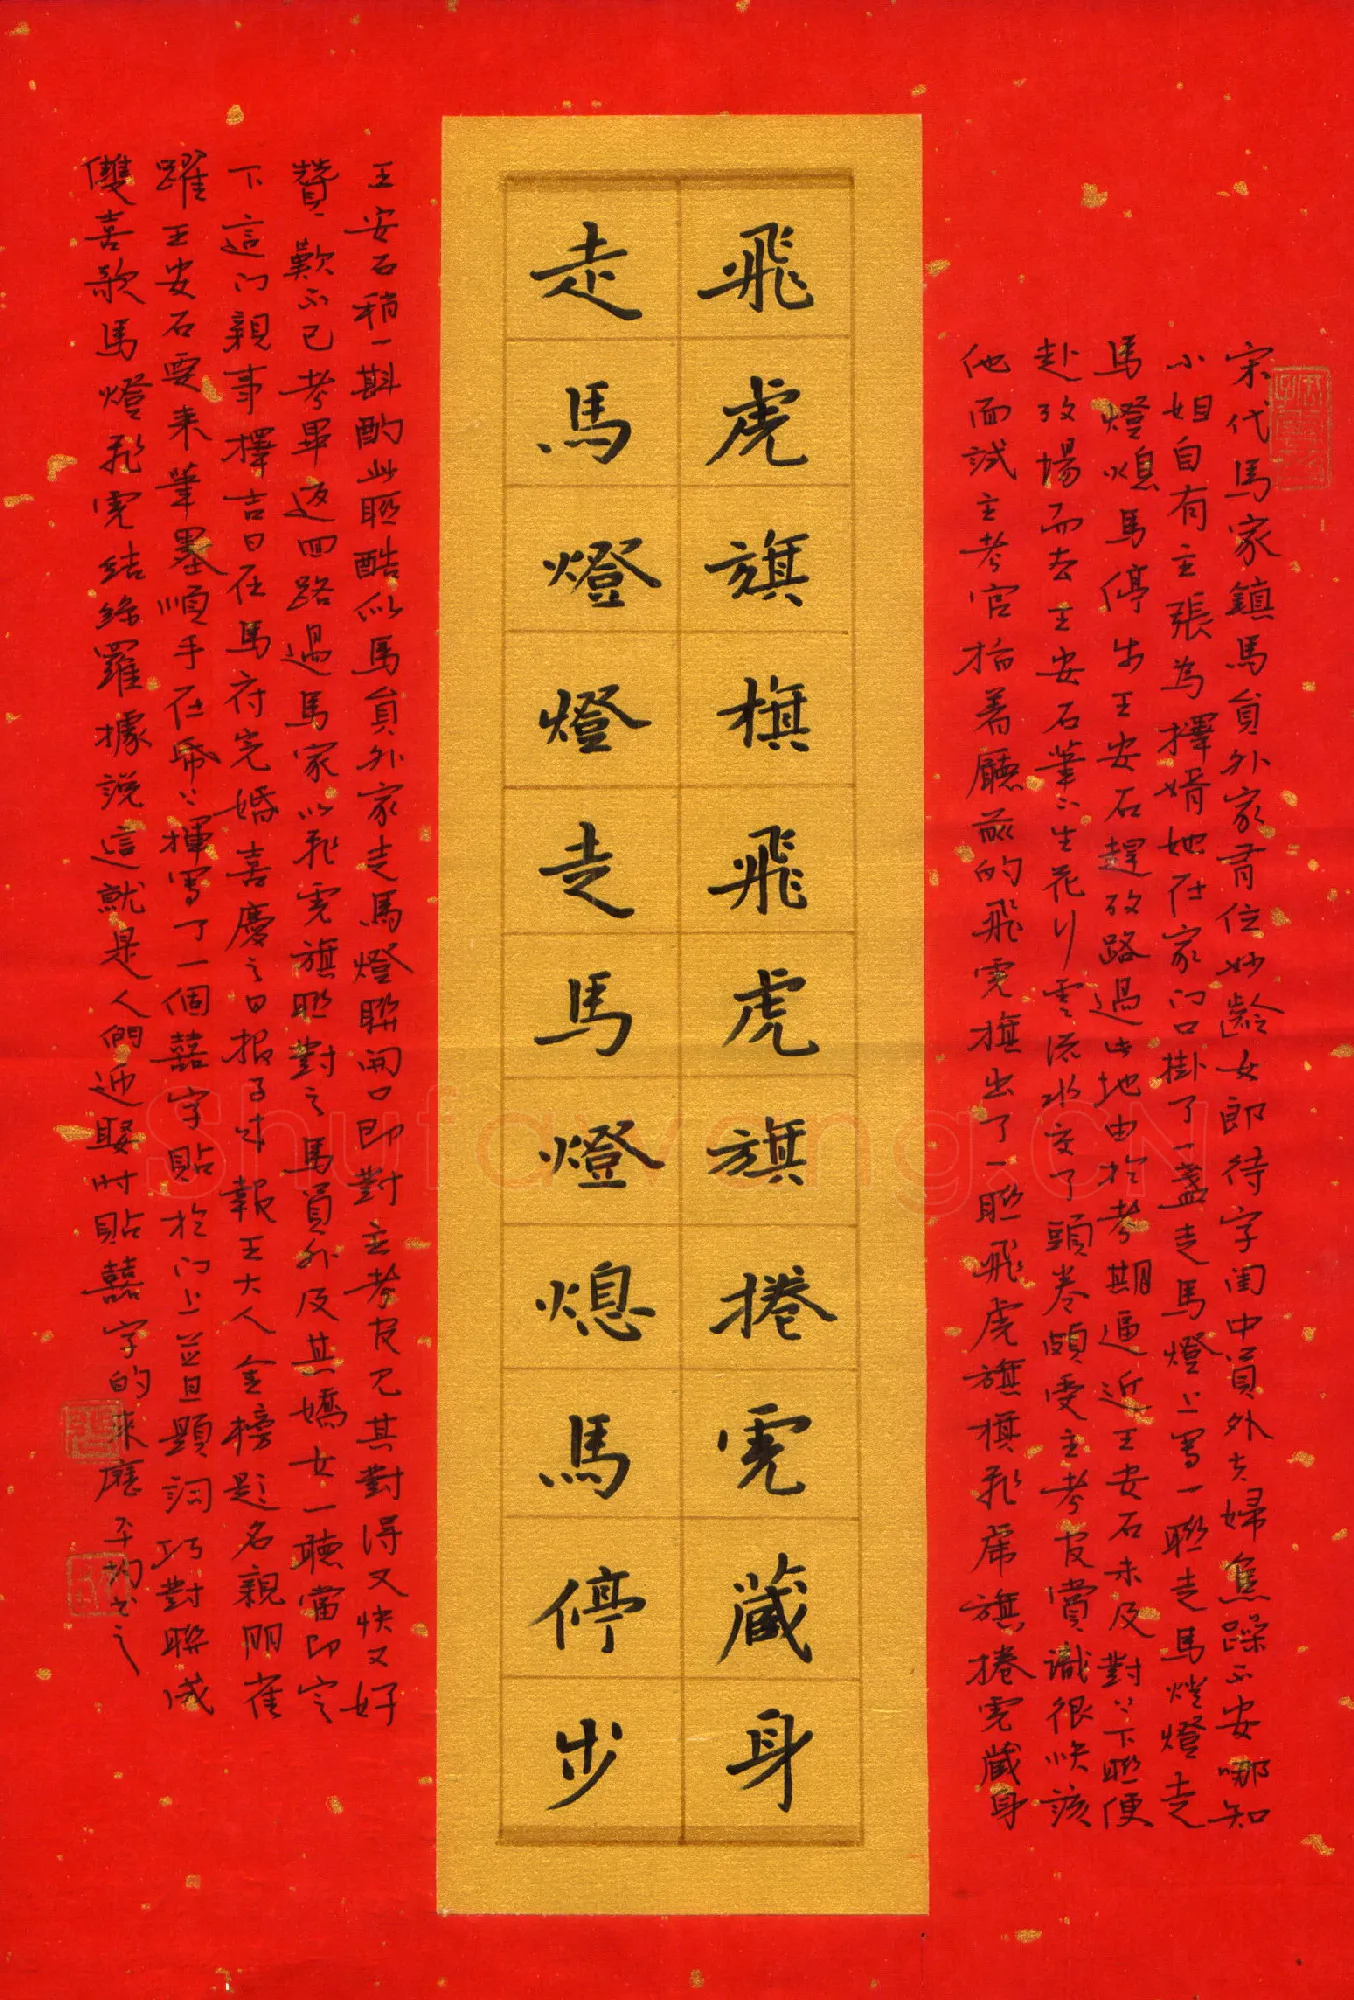 飛虎旗旗飛虎旗捲虎藏身
走馬燈燈走馬燈熄馬停步
宋代馬家鎮馬員外家有位妙齡女郎待字闺中員外夫婦焦躁不安哪知
小姐自有主張為擇婿她在家门口掛了一盞走馬燈上寫一聯走馬燈燈走
馬燈熄馬停步王安石趕攷路過此地由於考期逼近王安石未及對〻下聯便
赴攷場而去王安石筆〻生花行雲流水交了頭卷頗受主考官賞識很快該
他面試主考官指著廳前的飛虎旗出了一聯飛虎旗旗飛虎旗捲虎藏身
王安石稍一斟酌此聯酷似馬員外家走馬燈聯開口即對主考官见其對得又快又好
贊歎不已考畢返回路過馬家以飛虎旗聯對之馬員外及其嬌女一聽當即定
下這门親事擇吉日在馬府完婚喜慶之日报子來報王大人金榜題名親朋雀
躍王安石要来筆墨順手在紙上揮寫了一個囍字貼於门上並且題詞巧對聯成
雙喜歌馬燈飛虎結絲羅據說這就是人們迎娶时貼囍字的来歷
Shufawang.CN